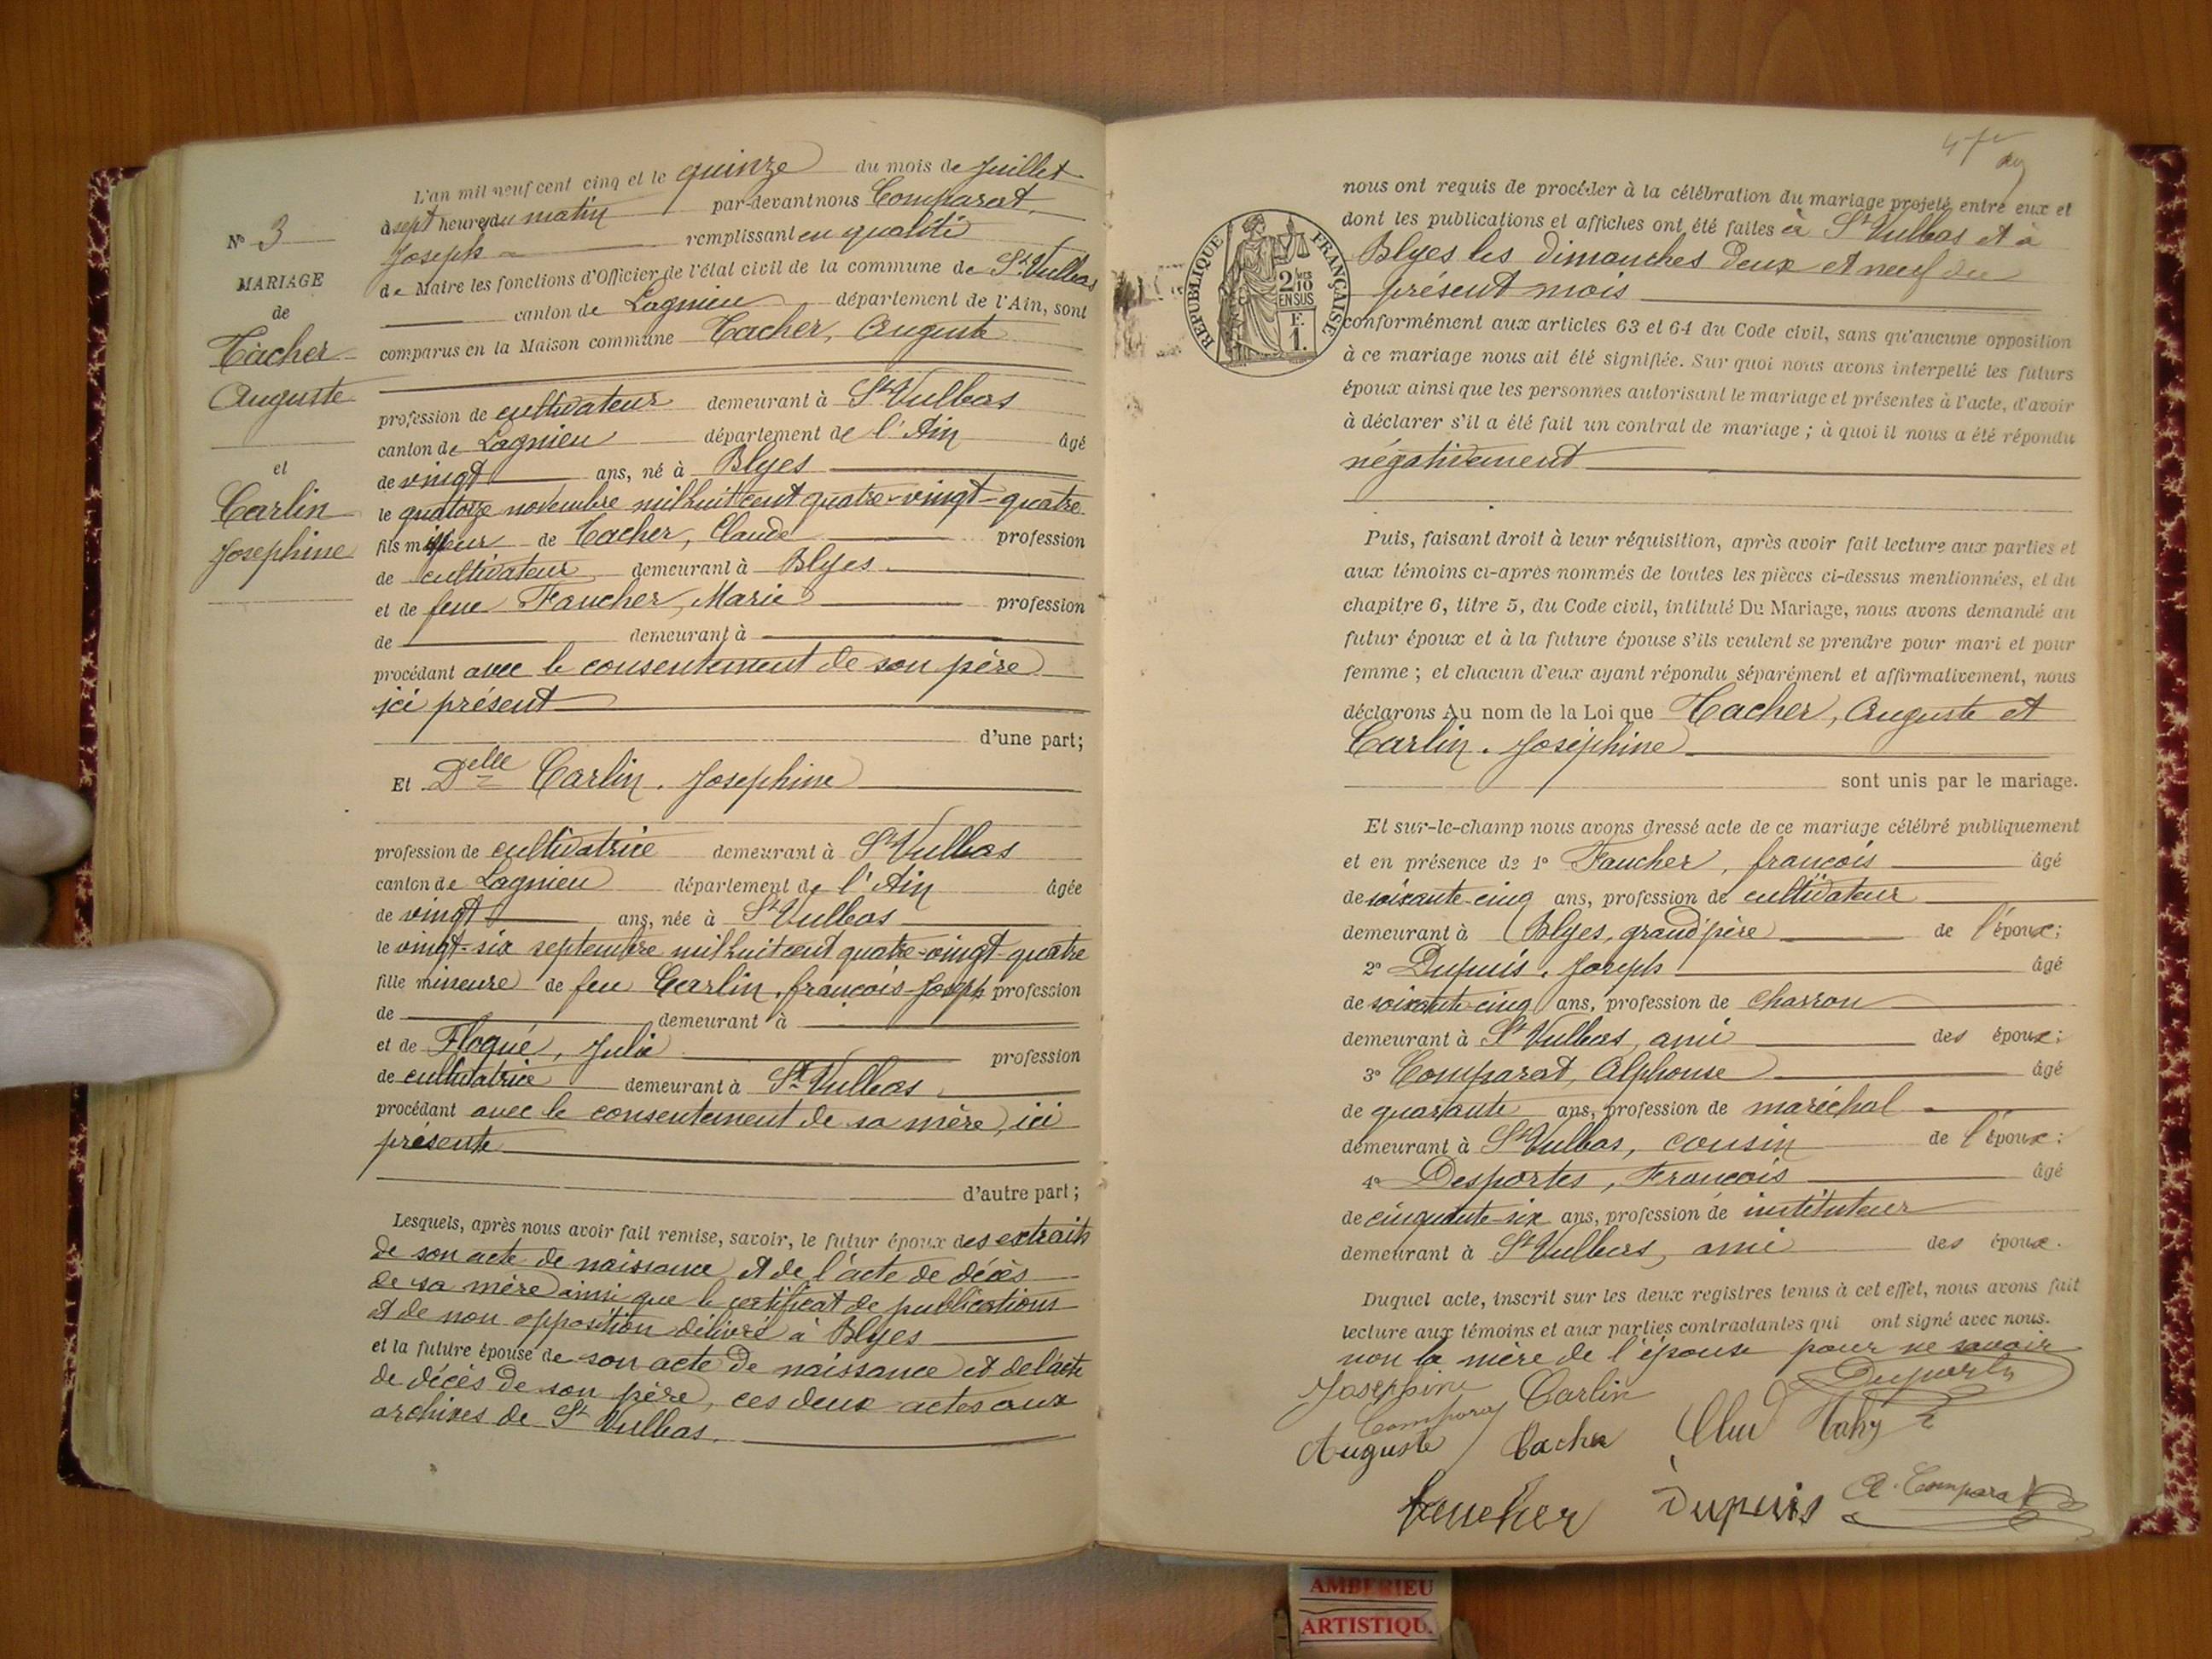 L'an mil neuf cent cinq et le quinze du mois de Juillet
à sept heures du matin par-devant nous Comparat,
Joseph remplissant en qualité
de Maire les fonctions d'Officier de l'état civil de la commune de St Vulbas
canton de Lagnieu département de l'Ain, sont
comparus en la Maison commune Tacher, Auguste
profession de cultivateur demeurant à St Vulbas
canton de Lagnieu département de l'Ain âgé
de vingt ans, né à Blyes
le quatorze novembre mil huit cent quatre-vingt-quatre
fils mineur de Tacher, Claude profession
de cultivateur demeurant à Blyes
et de feue Faucher, Marie profession
de demeurant à
procédant avec le consentement de son père
ici présent
d'une part;
Et Delle Carlin. Josephine
profession de cultivatrice demeurant à St Vulbas
canton de Lagnieu département de l'Ain âgée
de vingt ans, née à St Vulbas
le vingt-six septembre mil huit cent quatre-vingt-quatre
fille mineure de feu Carlin, françois-Joseph profession
de demeurant à
et de Floqué, Julie profession
de cultivatrice demeurant à St Vulbas
procédant avec le consentement de sa mère, ici
présente
d'autre part;
Lesquels, après nous avoir fait remise, savoir, le futur époux des extraits
de son acte de naissance et de l'acte de décès
de sa mère ainsi que le certificat de publications
et de non opposition délivré à Blyes
et la future épouse de son acte de naissance et de l'acte
de décès de son père, ces deux actes aux
archives de St Vulbas.
N° 3
MARIAGE
de
Tacher
Auguste
et
Carlin
Josephine
RÉPUBLIQUE FRANÇAISE
2 MES
10
EN SUS
F.
1.
nous ont requis de procéder à la célébration du mariage projeté entre eux et
dont les publications et affiches ont été faites à St Vulbas et à
Blyes les dimanches deux et neuf du
présent mois
conformément aux articles 63 et 64 du Code civil, sans qu'aucune opposition
à ce mariage nous ait été signifiée. Sur quoi nous avons interpellé les futurs
époux ainsi que les personnes autorisant le mariage et présentes à l'acte, d'avoir
à déclarer s'il a été fait un contrat de mariage; à quoi il nous a été répondu
négativement
Puis, faisant droit à leur réquisition, après avoir fait lecture aux parties et
aux témoins ci-après nommés de toutes les pièces ci-dessus mentionnées, et du
chapitre 6, titre 5, du Code civil, intitulé Du Mariage, nous avons demandé au
futur époux et à la future épouse s'ils veulent se prendre pour mari et pour
femme; et chacun d'eux ayant répondu séparément et affirmativement, nous
déclarons Au nom de la Loi que Tacher, Auguste et
Carlin. Joséphine
sont unis par le mariage.
Et sur-le-champ nous avons dressé acte de ce mariage célébré publiquement
et en présence de 1° Faucher, françois âgé
de soixante-cinq ans, profession de cultivateur
demeurant à Blyes, grand père de l'époux;
2° Dupuis. Joseph âgé
de soixante-cinq ans, profession de charron
demeurant à St Vulbas, ami des époux;
3° Comparat, Alphonse âgé
de quarante ans, profession de maréchal
demeurant à St Vulbas, cousin de l'époux;
4° Desportes, François âgé
de cinquante-six ans, profession de instituteur
demeurant à St Vulbas, ami des époux.
Duquel acte, inscrit sur les deux registres tenus à cet effet, nous avons fait
lecture aux témoins et aux parties contractantes qui ont signé avec nous.
non la mère de l'épouse pour ne savoir
Josephine Carlin
Comparat
Auguste Tacher
Faucher Dupuis A. Comparat
AMBERIEU
ARTISTIQU